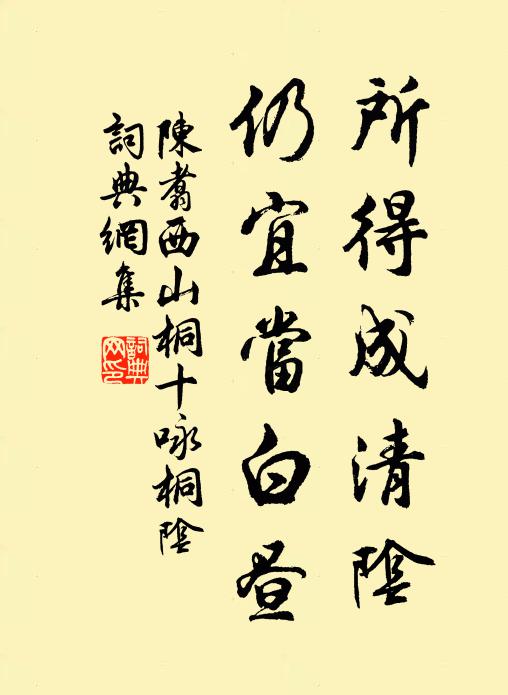 所得成清陰
仍宜當白晝
陳翥西山桐十咏桐陰
詞典網集
詞典網印